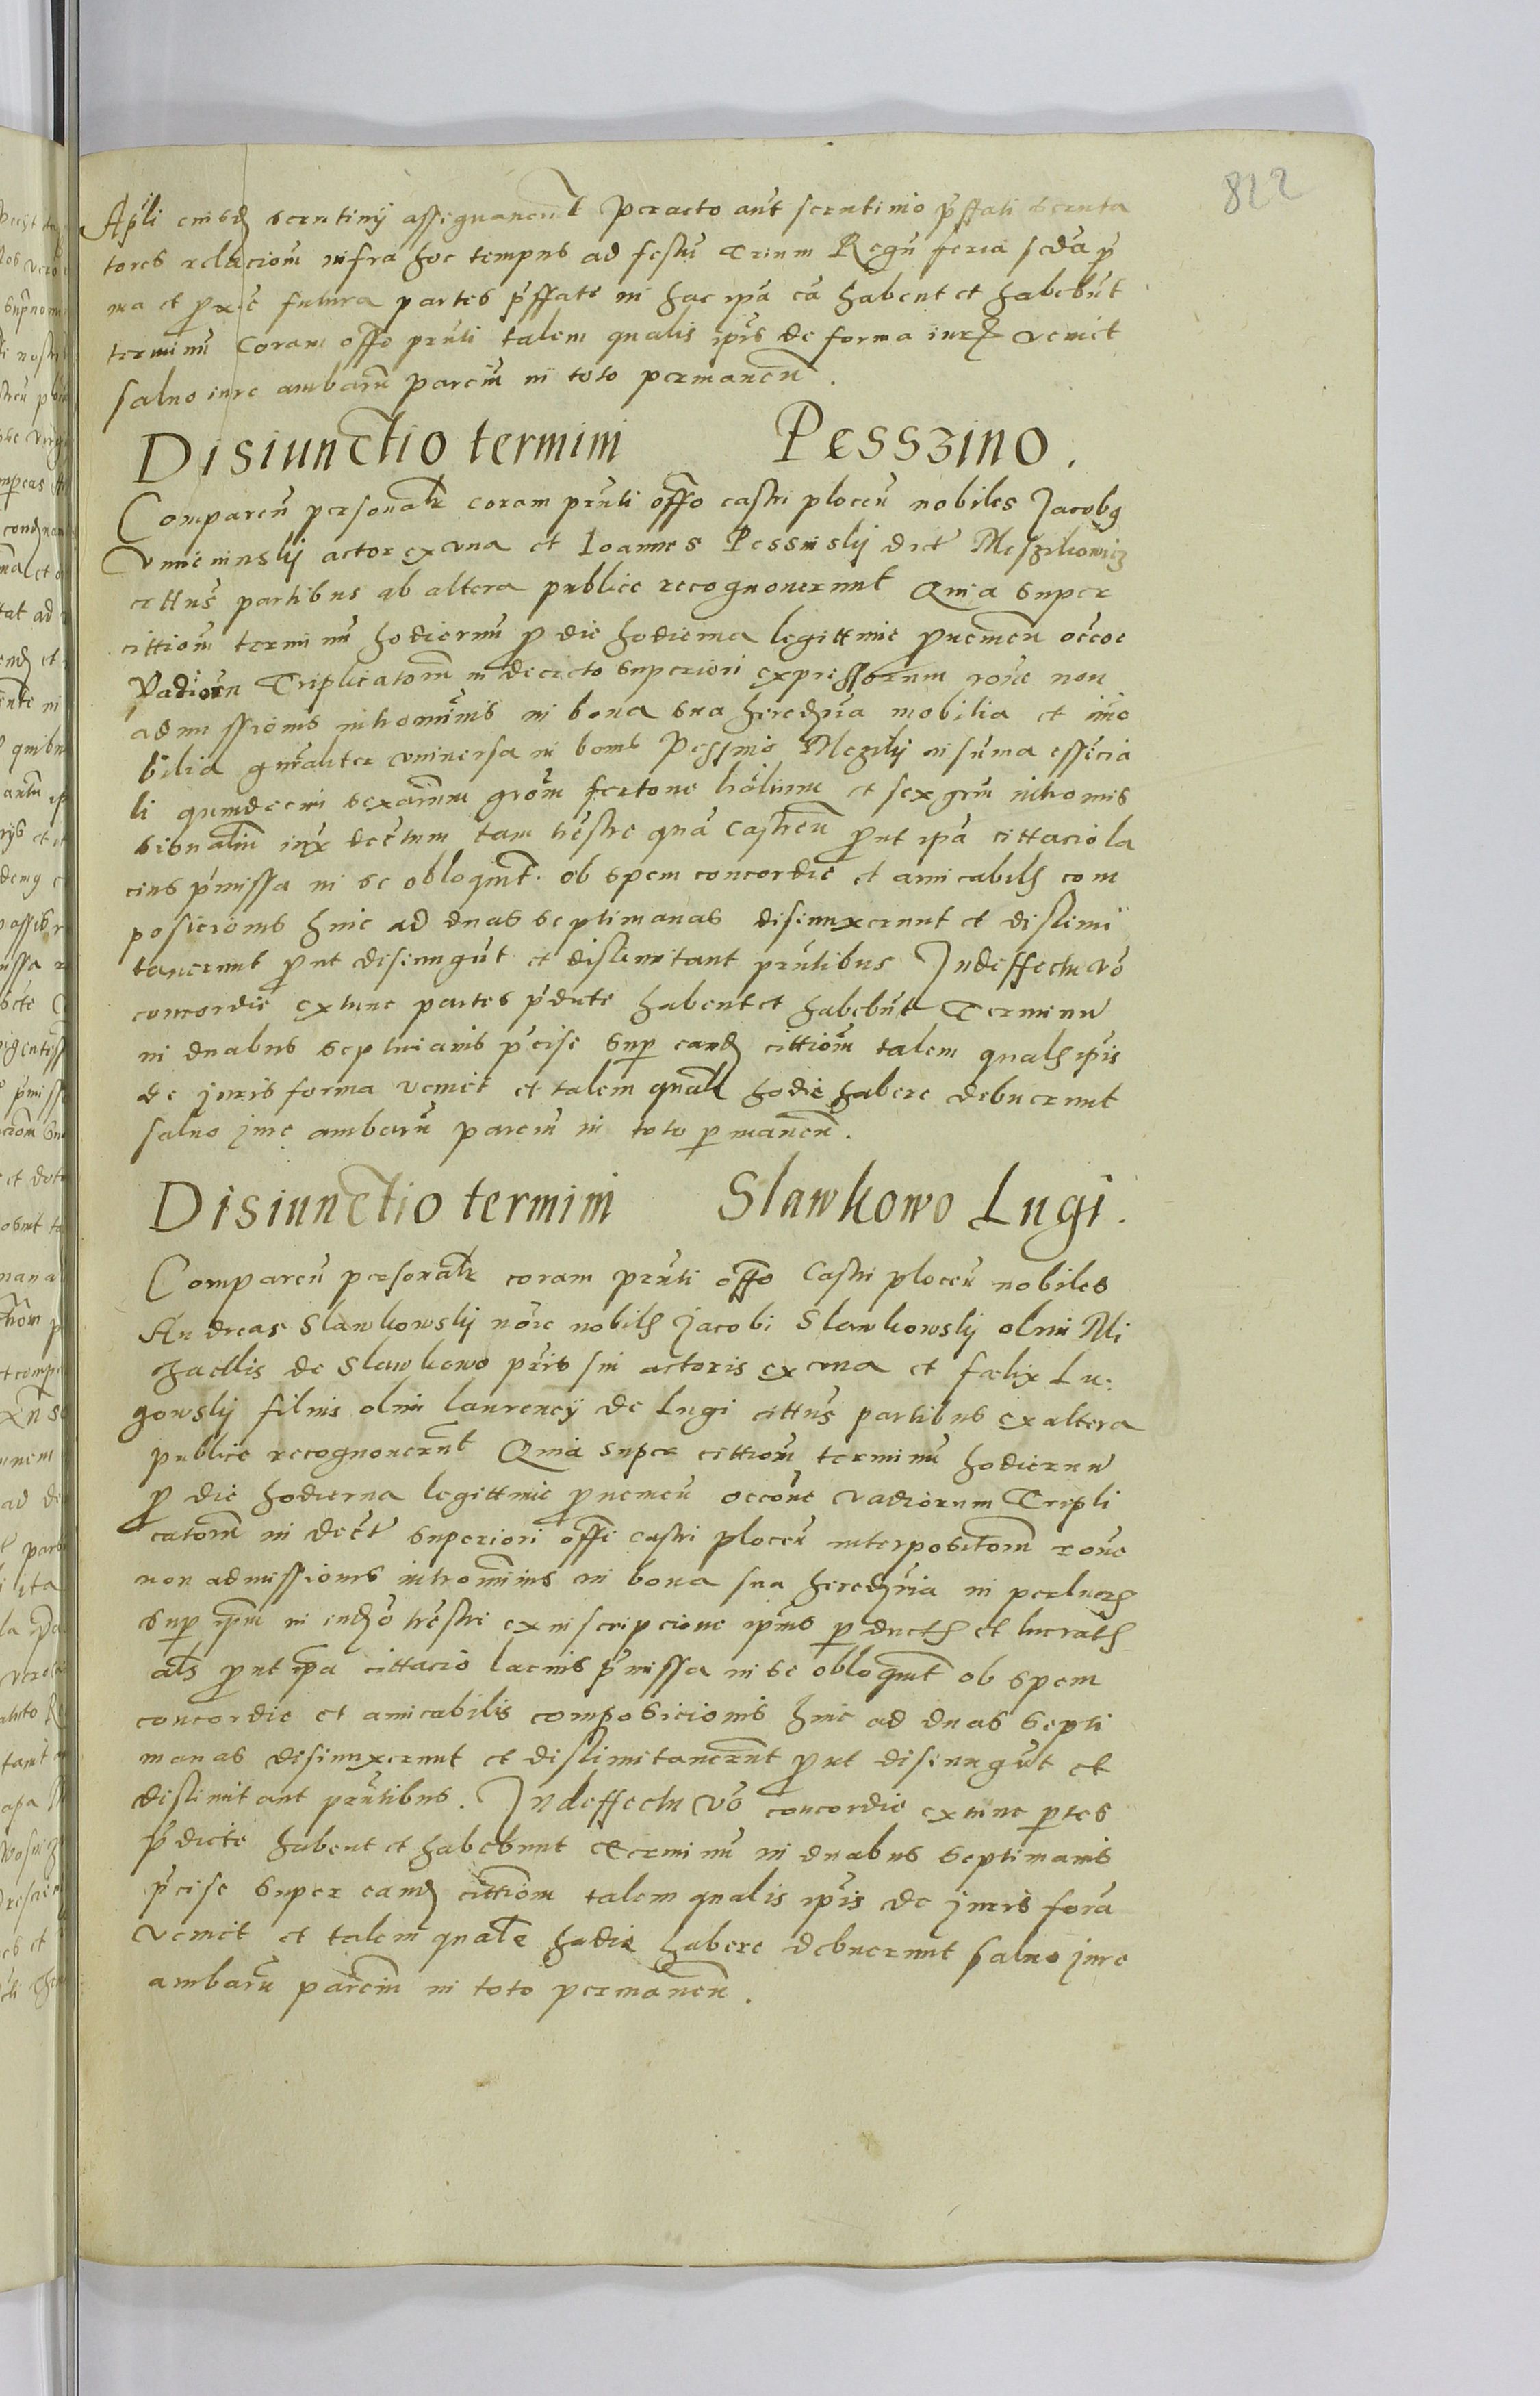 822
Apli eiusd scrutinij assignanerut peracto aut scrutinio prffati scruta
tores relaciom infra hoc tempus ad festu Trium Regu feria scda pr
ma et proxe futura partes prffate in hac ipa ca habent et habebut
terminu coram offo prnti talem qualis ipis de forma iur venit
saluo iure ambaru parciu in toto permanen.
Disiunctio termini Pesszino.
Comparen personalr coram prnti offo castri plocen nobiles Jacobg
actor ex una et Ioannes Pessinslij dict
cittus partibus ab altera publice recognouerunt Quia super
cittiom terminu hodiernu p die hodierna legittime puenien occoe
Vadiorn Triplicatorm in decreto superiori expressorum roue non
admissionis intromimis in bona sua heredria mobilia et imo
bilia gnraliter vniuersa in bonis Pessino in suma essecia
li quindecim sexarum grom fertone et sex grm intromis
sionaliu iux dectum tam trestre qua castren prout ipa cittacio la
cius pmissa in se obloquit. ob spem concordie et amicabil com
posicionis hinc ad duas septimanas disiunxerunt et distimi
tauerunt prout disiungut et distimitant prntibus Indeffectu vo
concordie extunc partes pdicte habent et habebut Terminu
in duabus septimanis pcise sup eand cittiom talem qual ipis
de juris forma venit et talem quale hodie habere debuerunt
saluo jure ambaru parciu in toto permanen.
Disiunctio termini Slawkowo Lugi.
Comparen personalr coram prnti offo Castri plocen nobiles
Andreas Slawkowslij noie nobil Jacobi Slawkowslij olim Mi
chaelis de Slawkowo pris sui actoris ex una et fælix Lu:
gowslij filius olim laurencij de Lugi cittus partibus ex altera
publice recognouerut Quia super cittiom terminu hodiernu
p die hodierna legittime prouenien occoue vadiorum Tripli
catorm in decrt superiori offi castri plocen interpositorm roue
non admissionis intromimis in bona sua heredria in perlucr
sup ipm in indo trestri ex inscripcione ipius p duct et lucrat
als prout ipa cittacio lacius pmissa in se obloquit ob spem
concordie et amicabilis composicionis hinc ad duas septi
manas disiunxerunt et distimitauerut prout disiungut et
distimitant prntibus. Indeffectu vo concordie extunc ptes
pdicte habent et habebunt Terminu in duabus septimanis
pcise super eand cittiom talem qualis ipis de juris fora
venit et talem quale hodie habere debuerunt saluo jure
ambaru parciu in toto permanen.